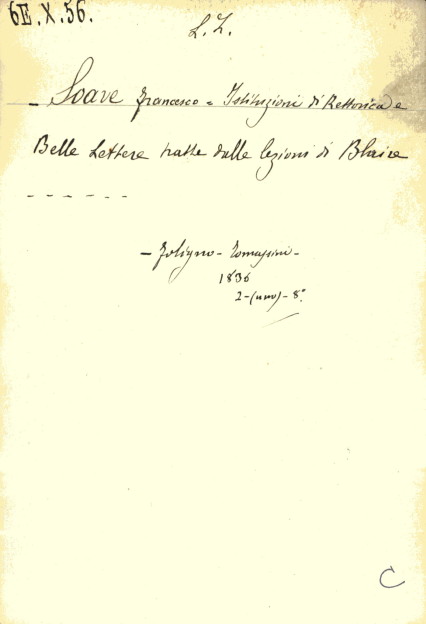 6E.X.56.
L.Z.
- Soave Francesco = Istituzioni di Rettorica e
Belle Lettere tratte dalle lezioni di Blaire
- - - - - -
- Foligno - Tomassini -
1836
2 - (uno) - 8°.
C